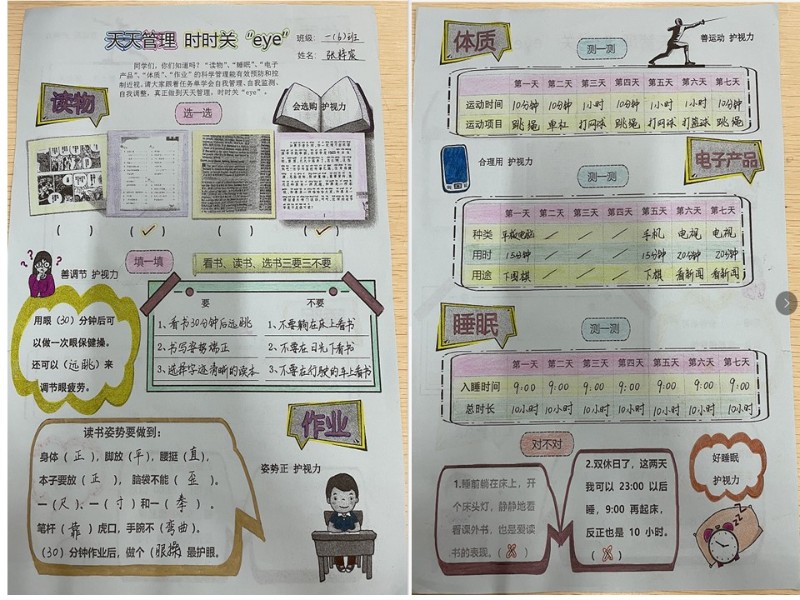 天天管理 时时关 “eye”
班级：一(6)班
姓名：
同学们，你们知道吗？“读物”、“睡眠”、“电子
产品”、“体质”、“作业”的科学管理能有效预防和控
制近视。请大家跟着任务单学会自我管理、自我监测、
自我调整，真正做到天天管理，时时关“eye”。
读物
选一选
会选购 护视力
( ) (✓) ( ) (✓)
善调节 护视力
填一填
看书、读书、选书三要三不要
用眼（30）分钟后可
以做一次眼保健操。
还可以（远眺）来
调节眼疲劳。
要 不要
1、看书30分钟后远眺 1、不要躺在床上看书
2、书写姿势端正 2、不要在日光下看书
3、选择字迹清晰的读本 3、不要在行驶的车上看书
作业
读书姿势要做到：
身体（正），脚放（平），腰挺（直），
本子要放（正），脑袋不能（歪）。
一（尺）、一（寸）和一（拳）。
笔杆（靠）虎口，手腕不（弯曲）。
（30）分钟作业后，做个（眼操）最护眼。
姿势正 护视力
体质
测一测
善运动 护视力
第一天 第二天 第三天 第四天 第五天 第六天 第七天
运动时间 10分钟 10分钟 1小时 10分钟 1小时 1小时 10分钟
运动项目 跳绳 单杠 打网球 跳绳 打网球 打篮球 跳绳
合理用 护视力
测一测
电子产品
第一天 第二天 第三天 第四天 第五天 第六天 第七天
种类 平板电脑 / / / 手机 电视 电视
用时 15分钟 / / / 15分钟 20分钟 20分钟
用途 下围棋 / / / 下棋 看新闻 看新闻
睡眠
测一测
第一天 第二天 第三天 第四天 第五天 第六天 第七天
入睡时间 9:00 9:00 9:00 9:00 9:00 9:00 9:00
总时长 10小时 10小时 10小时 10小时 10小时 10小时 10小时
对不对
好睡眠
护视力
1.睡前躺在床上，开
个床头灯，静静地看
看课外书，也是爱读
书的表现。（✗）
2.双休日了，这两天
我可以 23:00 以后
睡，9:00 再起床，
反正也是 10 小时。
（✗）